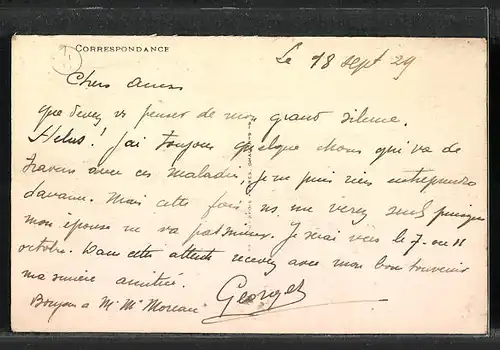 CORRESPONDANCE
Le 18 sept 29
Chers amis
que devez vs penser de mon grand silence.
Hélas! J'ai toujours quelque chose qui va de
travers avec ces maladies, je ne puis rien entreprendre
d'avance. Mais cette fois vs me verez seul puisque
mon épouse ne va pas mieux. Je serai vers le 7 ou 8
octobre. Dans cette attente recevez avec mon bon souvenir
ma sincère amitié.
Georges
Bonjour à Mr Me Moreau